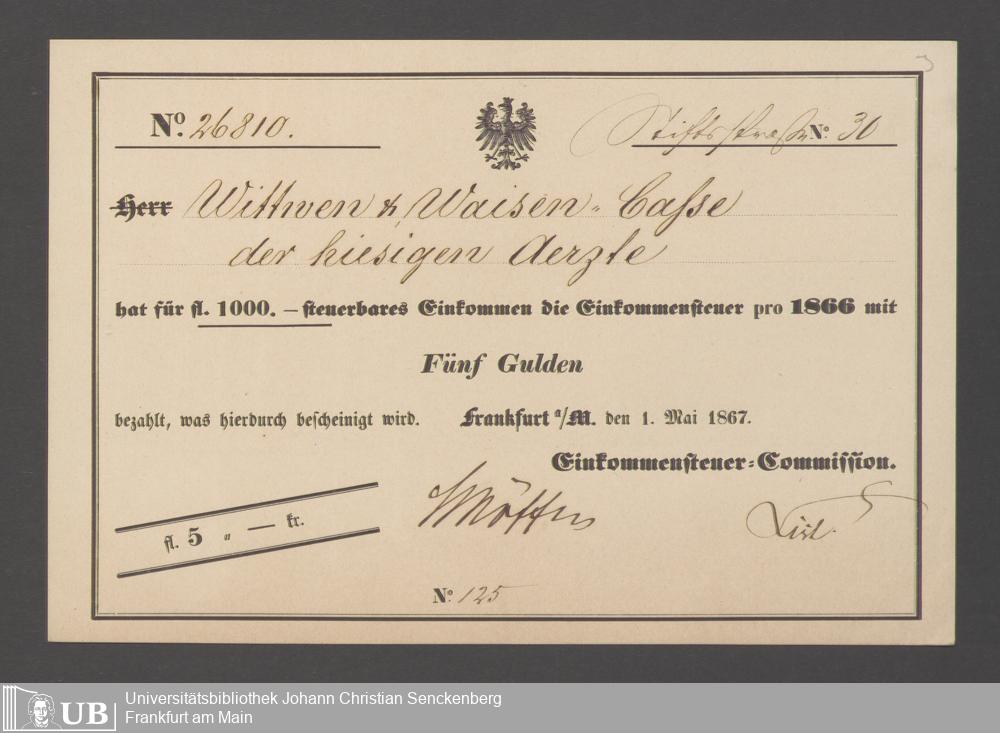 No. 26810.
Stiftsstraße No. 30
Herr Wittwen & Waisen-Casse
der hiesigen Aerzte
hat für fl. 1000. — steuerbares Einkommen die Einkommensteuer pro 1866 mit
Fünf Gulden
bezahlt, was hierdurch bescheinigt wird. Frankfurt a/M. den 1. Mai 1867.
Einkommensteuer-Commission.
fl. 5 „ — kr.
List
No. 125
3
Universitätsbibliothek Johann Christian Senckenberg
UB Frankfurt am Main